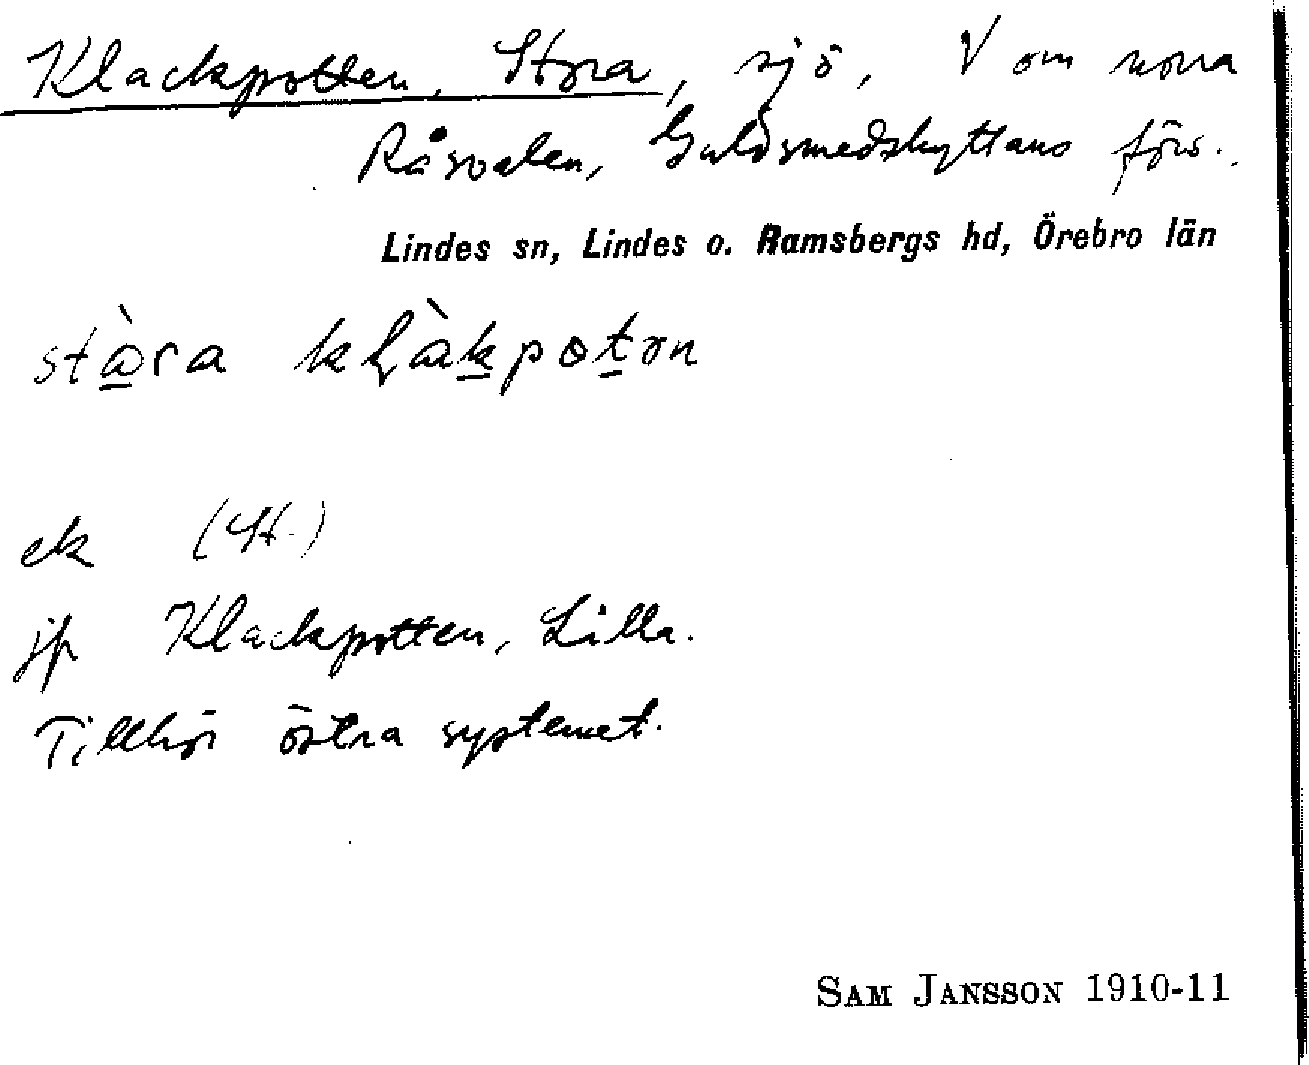 Klackpotten, Stora, sjö, V om norra
Råsvalen, Guldsmedshyttans förs.
Lindes sn, Lindes o. Ramsbergs hd, Örebro län
stàra kḷàkpotɘn
ek (St.)
jfr Klackpotten, Lilla.
Tillhör östra systemet.
SAM JANSSON 1910-11